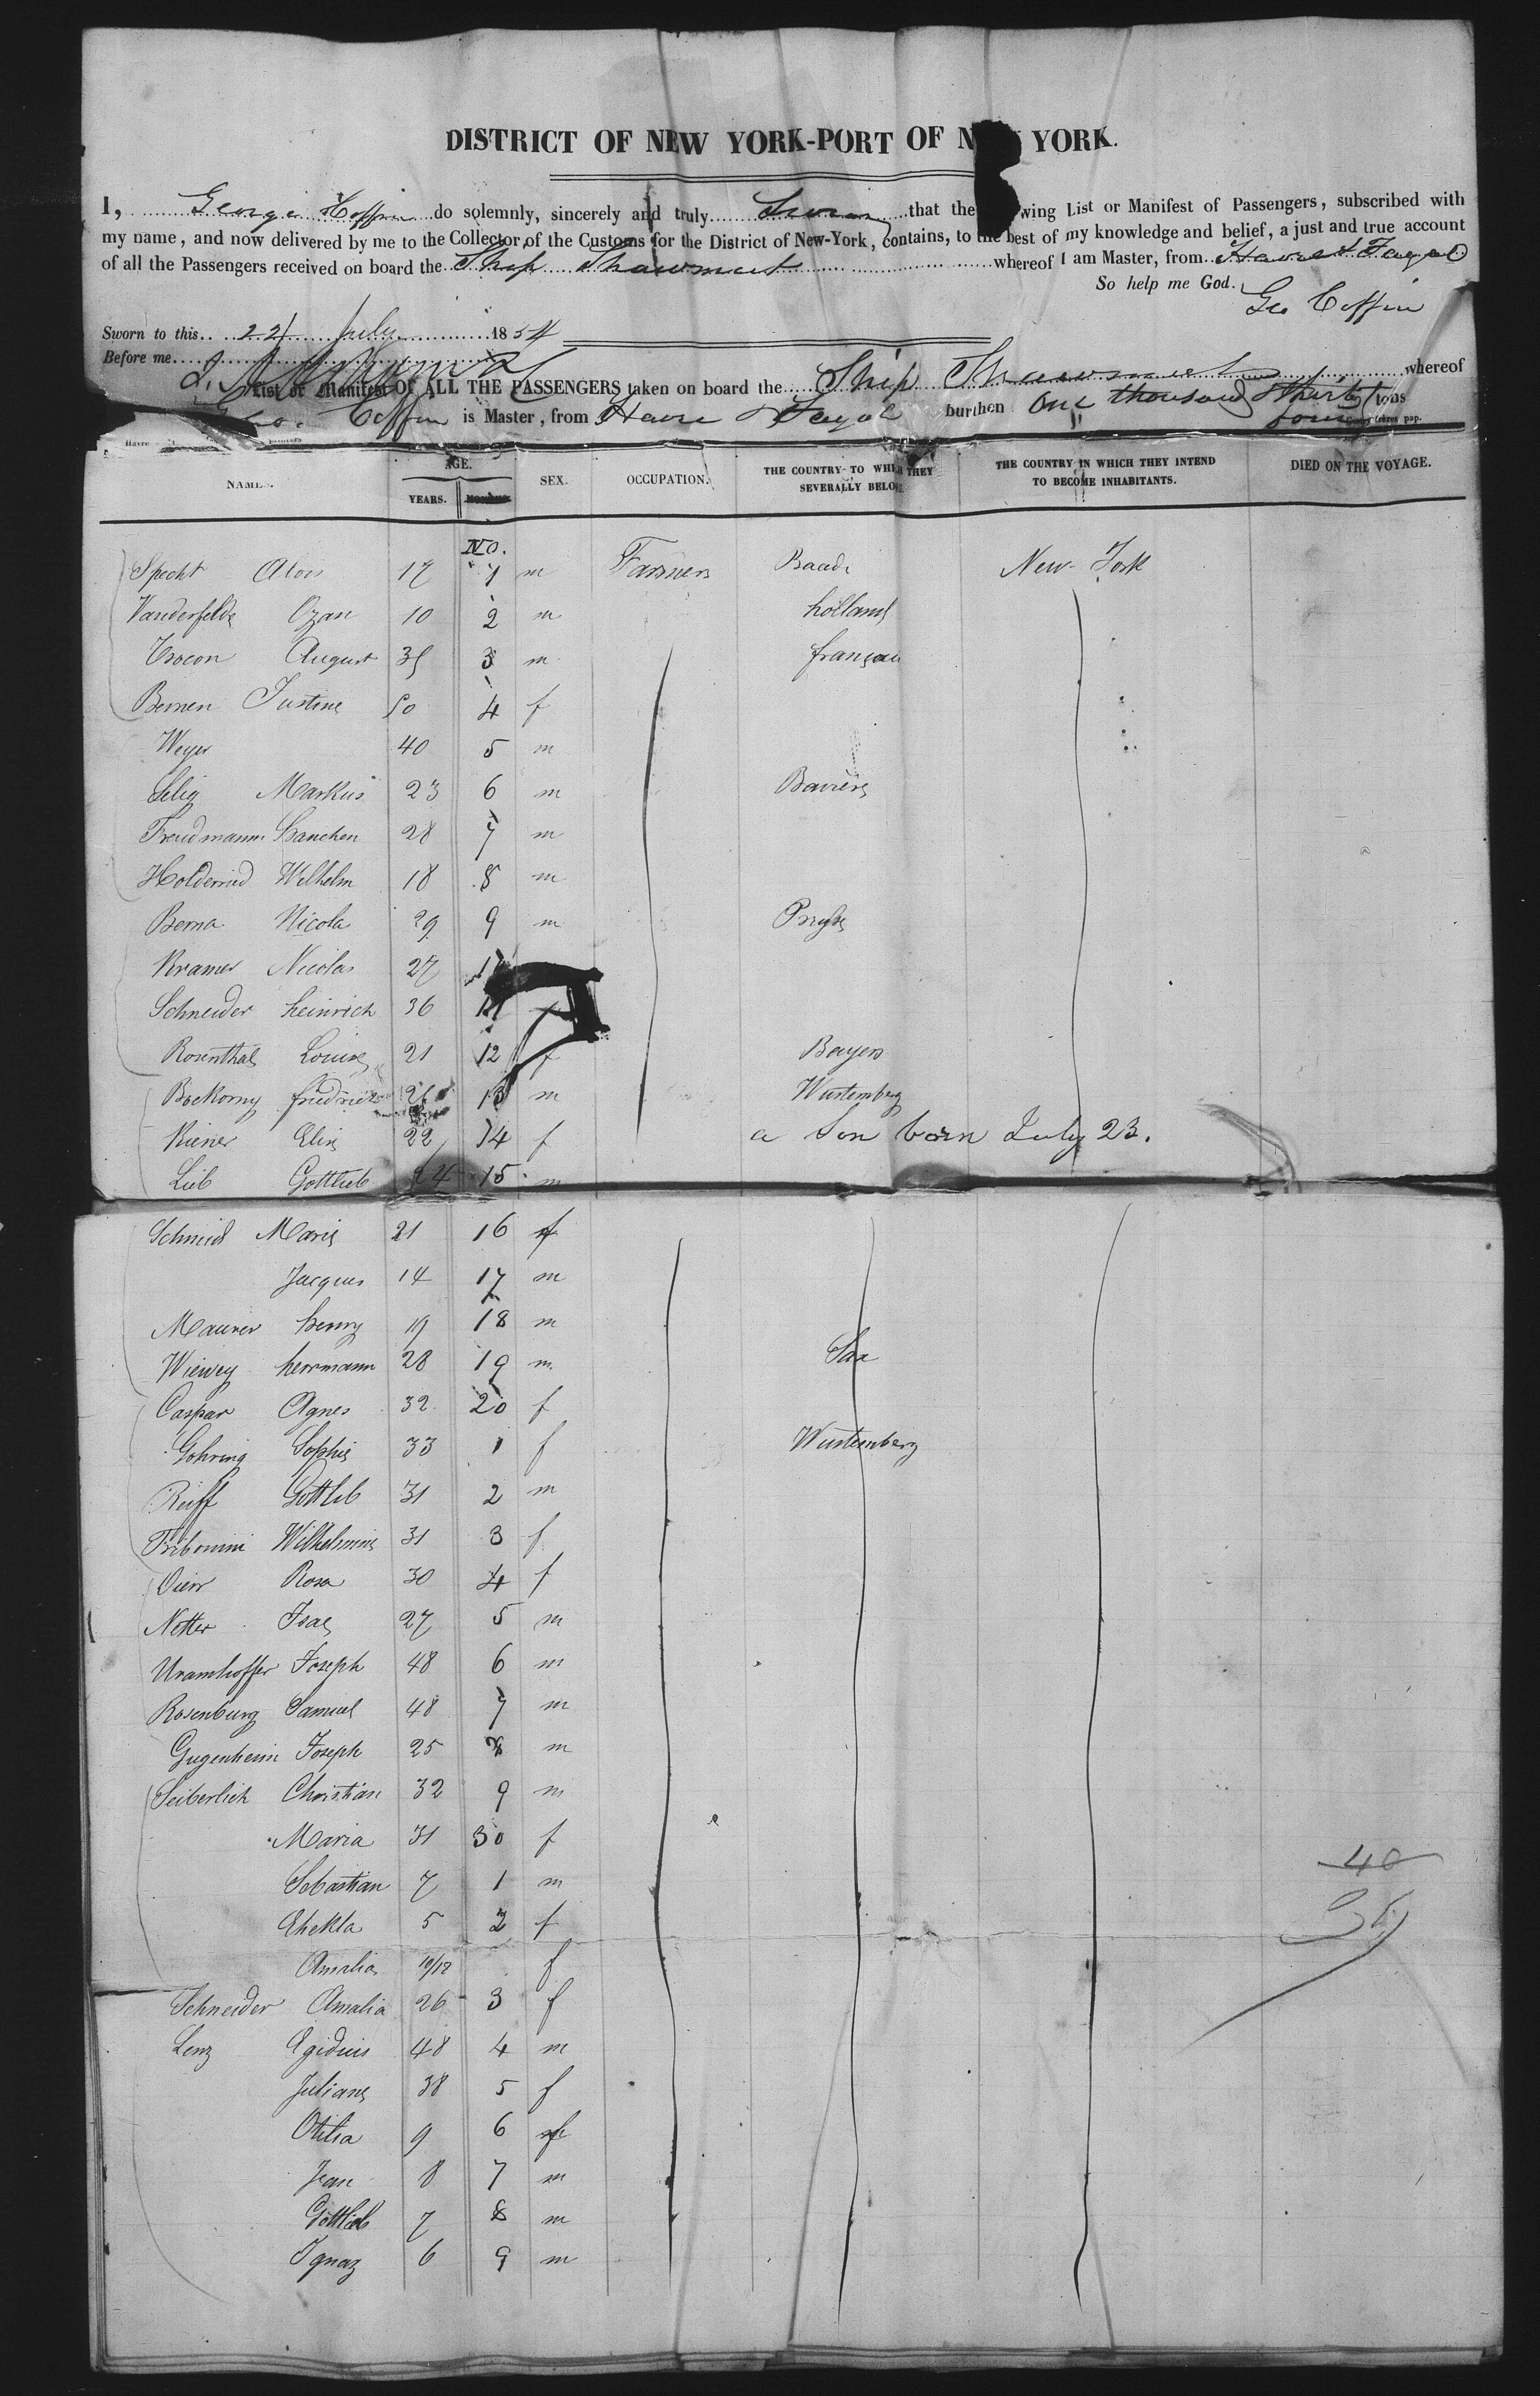 DISTRICT OF NEW YORK-PORT OF N YORK.
I, George Coffin do solemnly, sincerely and truly Swear that the wing List or Manifest of Passengers, subscribed with
my name, and now delivered by me to the Collector of the Customs for the District of New-York, contains, to the best of my knowledge and belief, a just and true account
of all the Passengers received on board the Ship Shawmut whereof I am Master, from Havre & Fayal
So help me God.
Geo Coffin
Sworn to this 24 July 1854
Before me
List or Manifest OF ALL THE PASSENGERS taken on board the Ship Shawmut whereof
Geo. Coffin is Master, from Havre & Fayal burthen One thousand & thirty four tons
NAMES. AGE. YEARS. MONTHS. SEX. OCCUPATION. THE COUNTRY TO WHICH THEY SEVERALLY BELONG. THE COUNTRY IN WHICH THEY INTEND TO BECOME INHABITANTS. DIED ON THE VOYAGE.
No.
Specht Alois 17 1 m Farmers Baade New-York
Vanderfelde Ozan 10 2 m holland
August 35 3 m français
Bernen Justine 50 4 f
Weyer 40 5 m
Selig Markus 23 6 m Baviere
Freudmann hanchen 28 7 m
Holderried Wilhelm 18 8 m
Berna Nicola 29 9 m
Kramer Nicolas 27
Schneider heinrich 36 11
Rosenthal Louise 21 12 f Bayern
Bockorny friedrich 26 13 m Wurtemberg
Kiener Elis 22 14 f a Son born July 23.
Lieb Gottlieb 24 15 m
Schmid Marie 21 16 f
Jacques 14 17 m
Maurer henry 19 18 m
Wiewey herrmann 28 19 m Sax
Caspar Agnes 32 20 f
Gohring Sophie 33 1 f Wurtemberg
Reiff Gottlib 31 2 m
Wilhelmine 31 3 f
Rosa 30 4 f
Netter Isac 27 5 m
Uramhoffer Joseph 48 6 m
Rosenburg Samuel 48 7 m
Gugenheim Joseph 25 8 m
Seiberlich Christian 32 9 m
Maria 31 30 f
Sebastian 7 1 m
Thekla 5 2 f
Amalia 10/12 f
Schneider Amalia 26 3 f
Lenz Egidius 48 4 m
Juliane 38 5 f
Otilia 9 6 f
Jean 8 7 m
Gottlieb 7 8 m
Ignaz 6 9 m
40